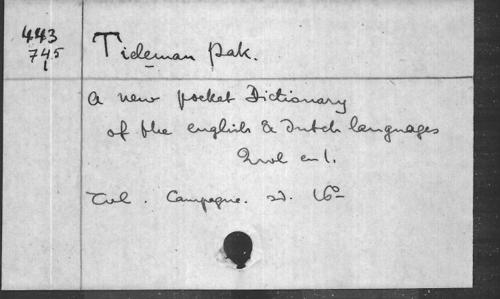 443
745
1
Tideman Jak.
A new pocket Dictionary
of the english & dutch languages
2 vol en 1.
Tiel. Campagne. sd. 16°